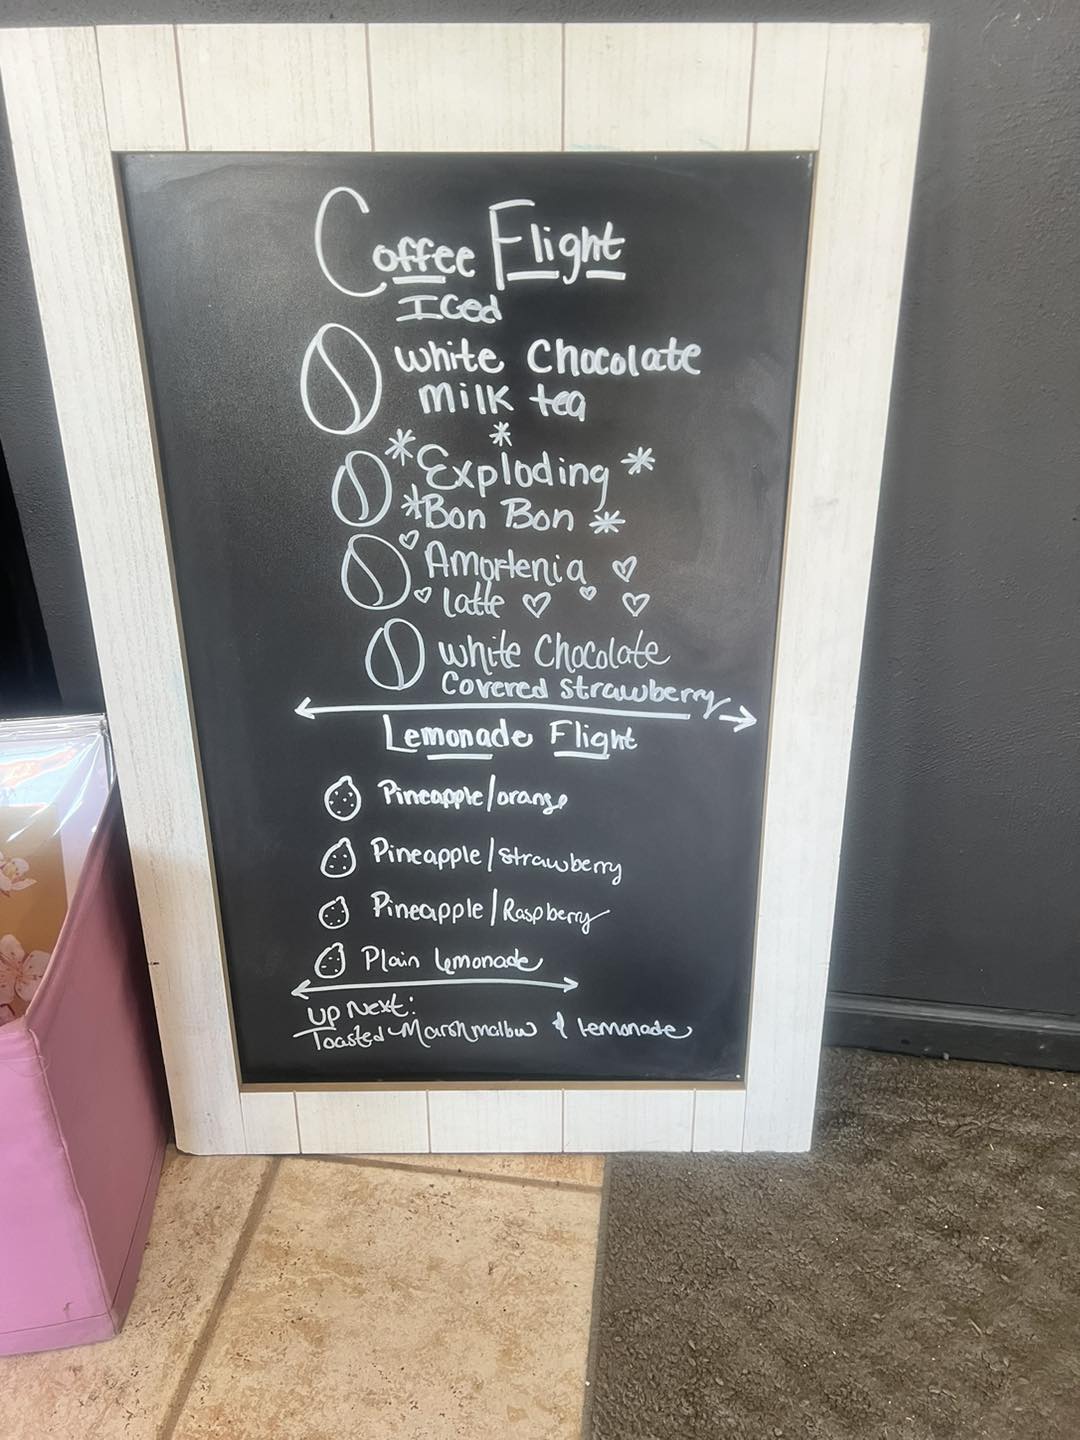 Coffee Flight
Iced
White Chocolate
Milk tea
Exploding
Bon Bon
Amortenia
latte
White Chocolate
Covered Strawberry
Lemonade Flight
Pineapple/orange
Pineapple/Strawberry
Pineapple/Raspberry
Plain Lemonade
Up Next:
Toasted Marshmallow & lemonade